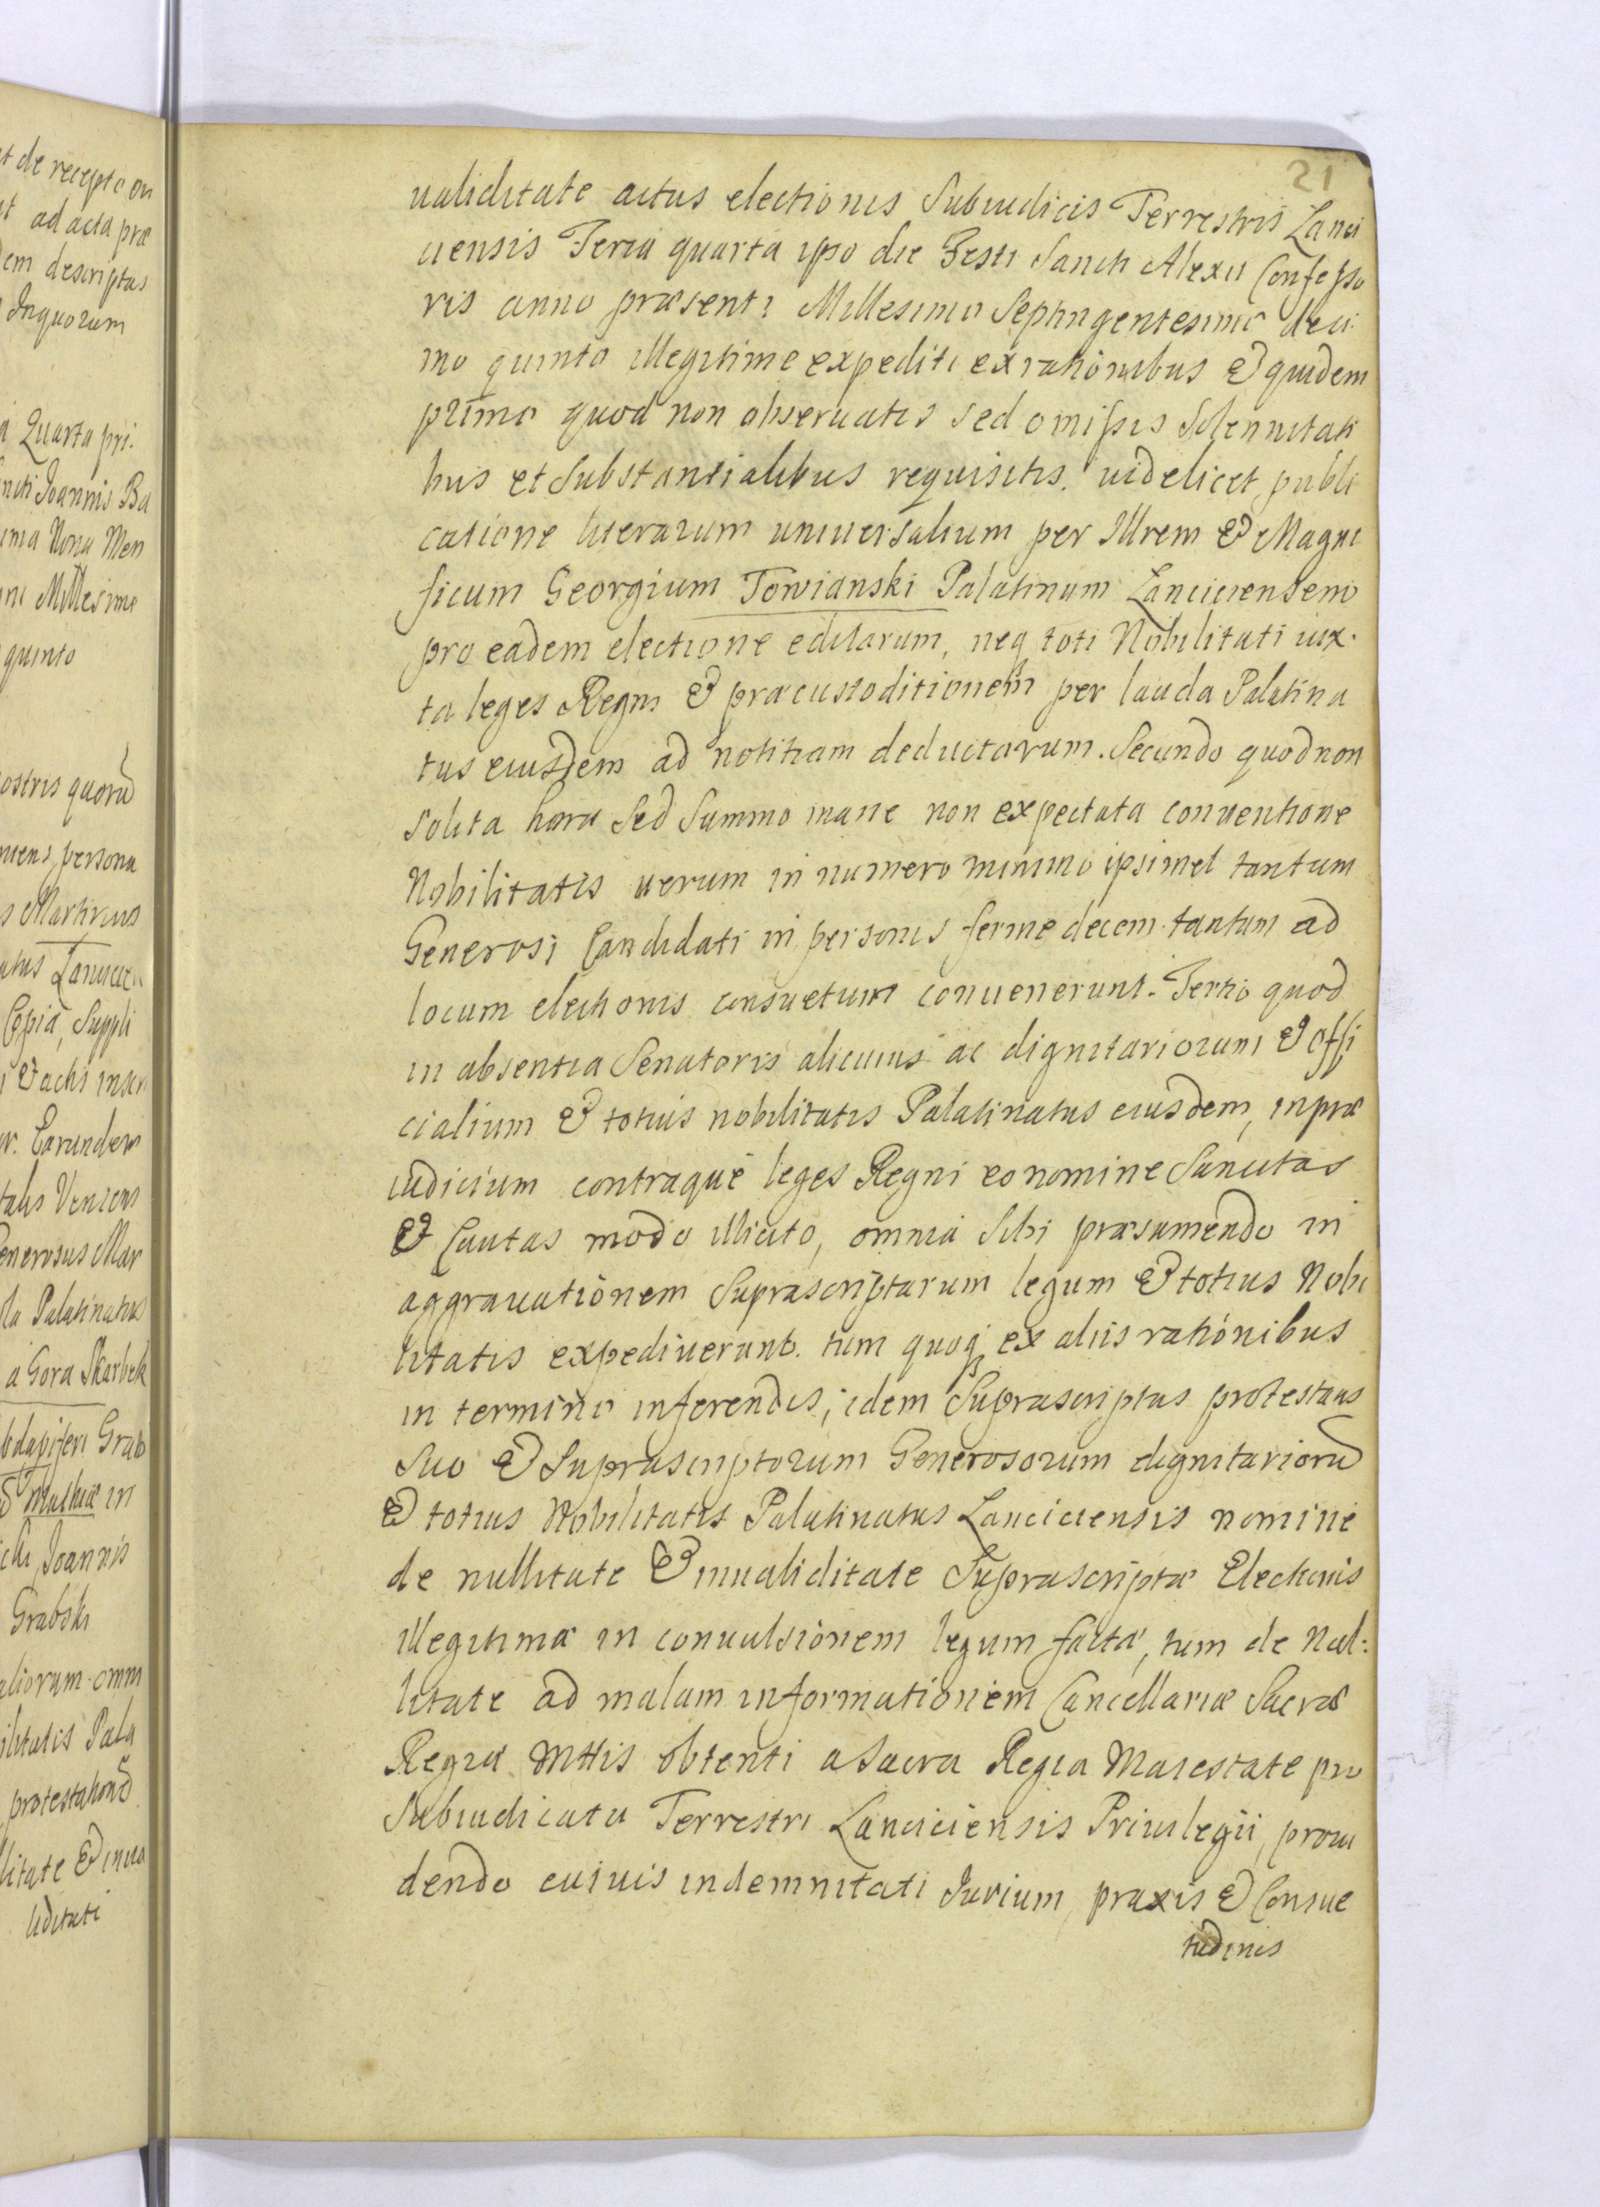 21
ualiditate actus electionis Subiudicis Terrestris Lanci
ciensis Feria quarta ipso die Festi Sancti Alexii Confesso
ris anno præsenti Millesimo Septingentesimo deci
mo quinto illegitime expediti ex rationibus & quidem
primo quod non obseruatis sed omissis Solennitati
bus et Substantialibus requisitis. uidelicet, publi
catione literarum uniuersalium per Illrem & Magni
ficum Georgium Towianski Palatinum Lanciciensem
pro eadem electione editarum, neq toti Nobilitati iux.
ta leges Regni & præcustoditionem per lauda Palatina
tus eiusdem ad notitiam deductarum. Secundo quod non
solita hora Sed Summo mane non expectata conuentione
Nobilitatis uerum in numero minimo ipsimet tantum
Generosi Candidati in personis ferme decem tantum ad
locum electionis consuetum conuenerunt. Tertio quod
in absentia Senatoris alicuius ac dignitariorum & Offi
cialium & totius nobilitatis Palatinatus eiusdem, in præ
iudicium contraque leges Regni eo nomine Sancitas
& Cautas modo illicito, omnia Sibi præsumendo in
aggrauationem Suprascriptarum legum & totius Nobi
litatis expediuerunt. tum quoq ex aliis rationibus
in termino inferendis, idem Suprascriptus protestans
Suo & Suprascriptorum Generosorum dignitarioru
& totius Nobilitatis Palatinatus Lanciciensis nomine
de nullitate & inualiditate Suprascriptæ Electionis
illegitimæ in conuulsionem legum factæ, tum de Nul:
litate ad malam informationem Cancellariæ Sacræ
Regiæ Mttis obtenti a Sacra Regia Maiestate pro
Subiudicatu Terrestri Lanciciensis Priuilegii, proui
dendo cuiuis indemnitati Iurium, praxis & Consue
tudinis